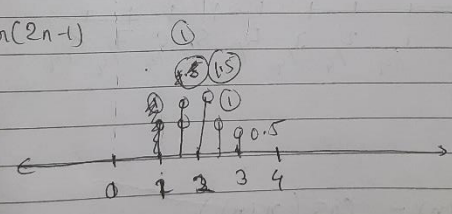 n(2n-1) 1
1.5
1
0.5
0 1 2 3 4